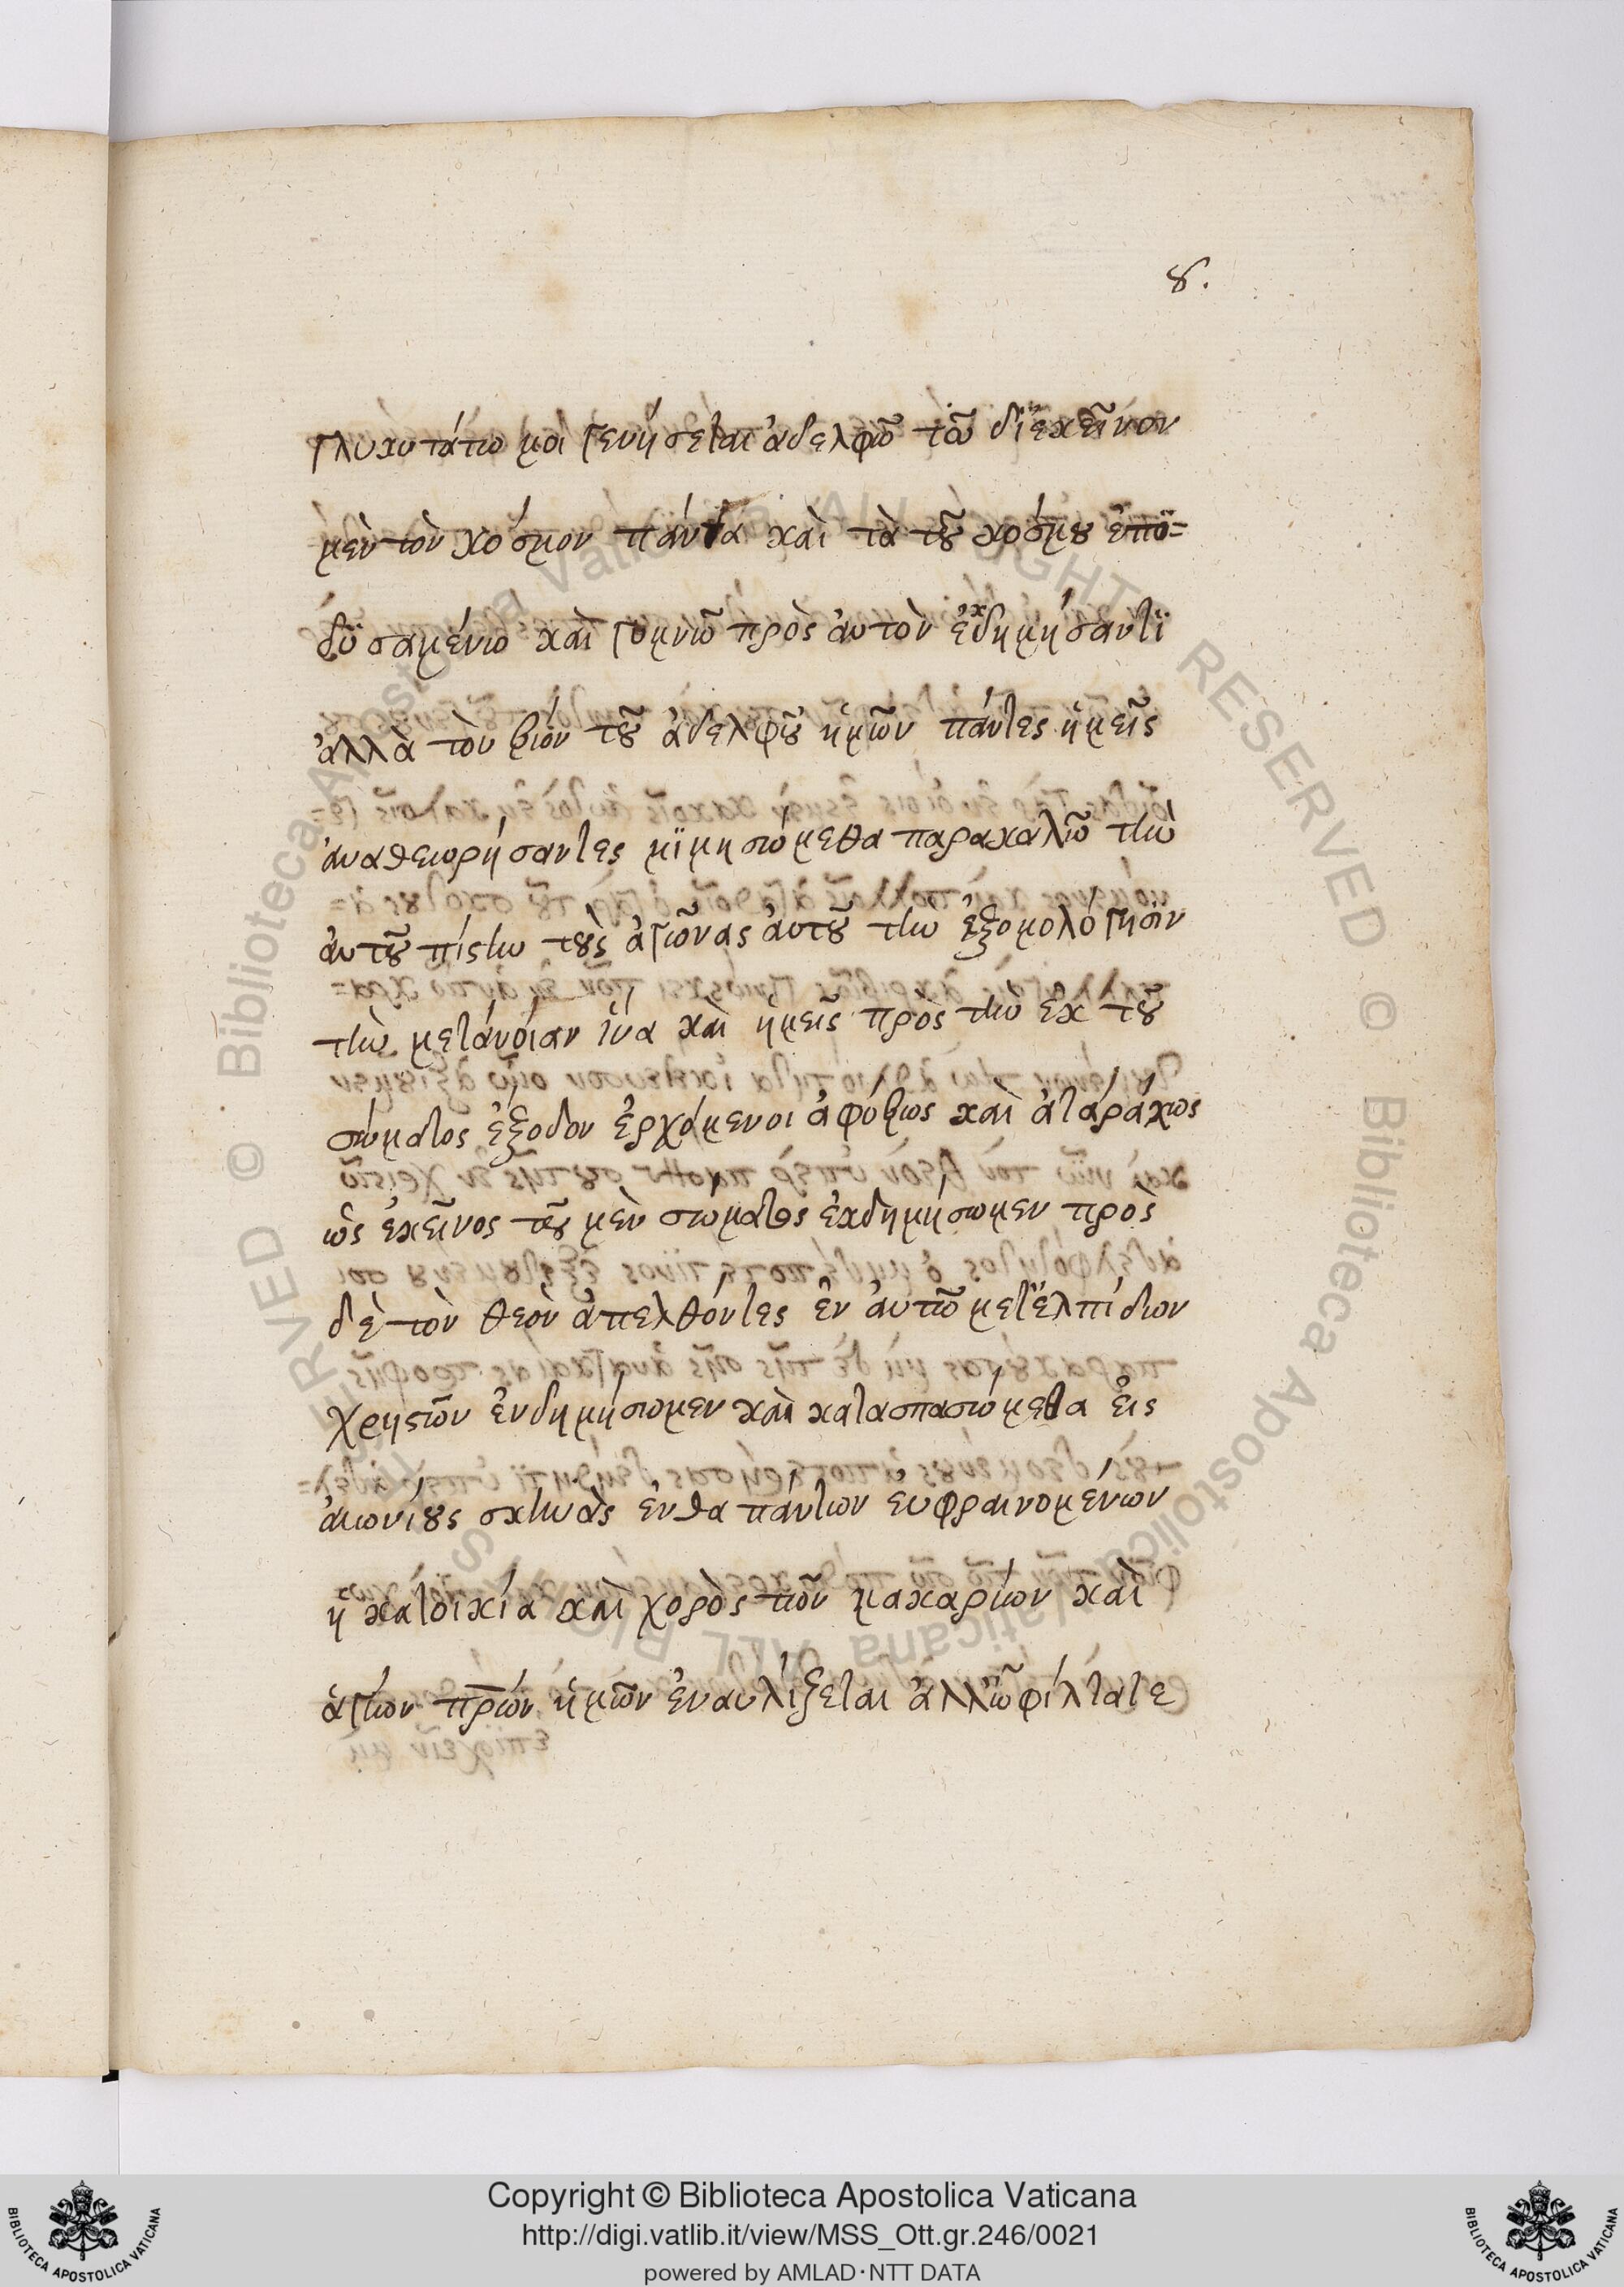 8.
γλυκυτάτω μοὶ γενήσεται ἀδελφῶ τῶ δϊ' ἐκεῖνον
μὲν τὸν κόσμον πάντα καὶ τὰ τοῦ κόσμου ὑπο=
δϋσαμένω καὶ γυμνῶ πρὸς ἀυτὸν ἐκδημήσαντϊ
ἀλλὰ τὸν βιόν τοῦ ἀδελφοῦ ἡμῶν πάντες ἡμεῖς
ἀναθεωρήσαντες μϊμησώμεθα παρακαλῶ τὴν
ἀυτοῦ πίστιν τοὺς ἀγῶνας ἀυτοῦ τὴν ἐξομολόγησϊν
τὴν μετάνοίαν ἵνα καὶ ἡμεῖς πρὸς τὴν ἐκ τοῦ
σώματος ἔξοδον ἐρχόμενοι ἀφόβως καὶ ἀταράχως
ὡς ἐκεῖνος τοῦ μὲν σώματος ἐκδημήσωμεν πρὸς
δὲ τὸν θεὸν ἀπελθόντες ἐν ἀυτῶ μετ' ἐλπίδων
χρηστῶν ἐνδημήσωμεν καὶ κατασπασώμεθα ἐις
ἀιωνίους σκηνὰς ἔνθα πάντων ευφραινομένων
ἡ κατοικία καὶ χορὸς τῶν μακαρίων καὶ
ἁγίων πρων ἡμῶν ἐναυλίζεται ἀλλ' ὦ φίλτατε
Copyright © Biblioteca Apostolica Vaticana
http://digi.vatlib.it/view/MSS_Ott.gr.246/0021
powered by AMLAD·NTT DATA
BIBLIOTECA APOSTOLICA VATICANA
BIBLIOTECA APOSTOLICA VATICANA
© Biblioteca Apostolica Vaticana ALL RIGHTS RESERVED
© Biblioteca Apostolica Vaticana ALL RIGHTS RESERVED